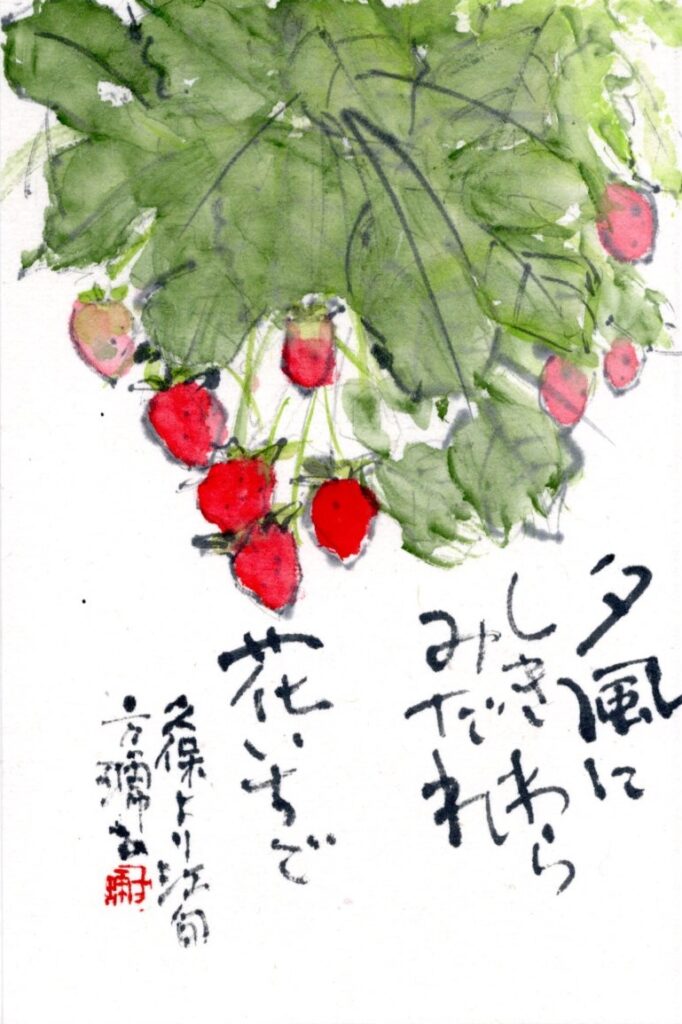 夕風に
しきわら
みだれ
花いちご
久保より江句